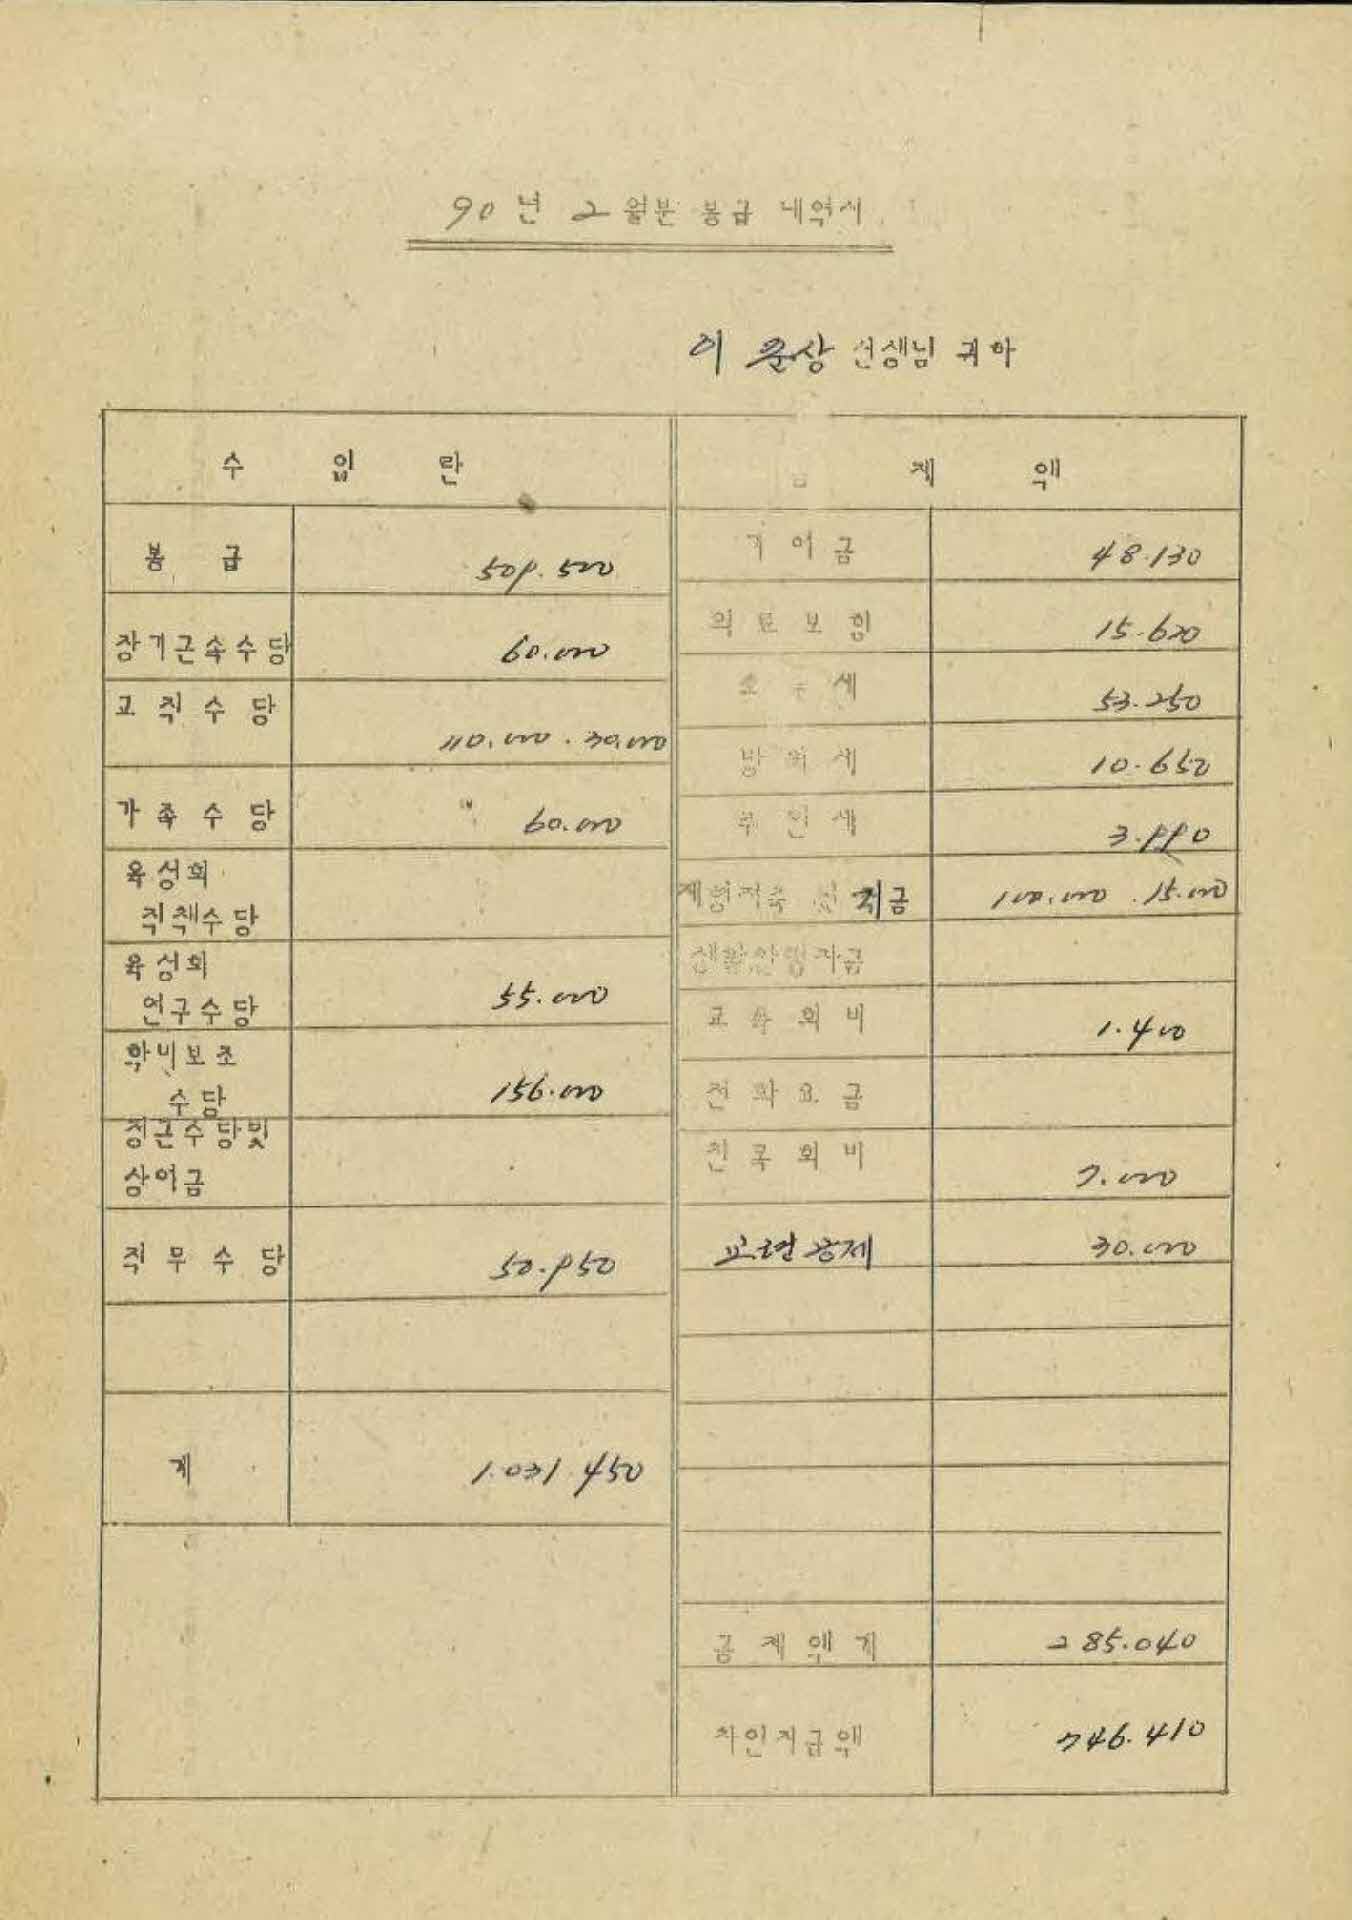 90 년 2 월분 봉급 내역서
이 윤상 선생님 귀하
수 입 란
봉 급 509.500
장기근속수당 60.000
교 직 수 당 110.000 . 30.000
가 족 수 당 60.000
육성회
직책수당
육성회
연구수당 55.000
학비보조
수당 156.000
정근수당및
상여금
직 무 수 당 50.950
계 1.031.450
공 제 액
기 여 금 48.130
의 료 보 험 15.620
소 득 세 53.250
방 위 세 10.650
주 민 세 3.990
재형저축 적금 100.000 . 15.000
생활안정자금
교 육 회 비 1.400
전 화 요 금
친 목 회 비 7.000
교련 공제 30.000
공 제 액 계 285.040
차인지급액 746.410